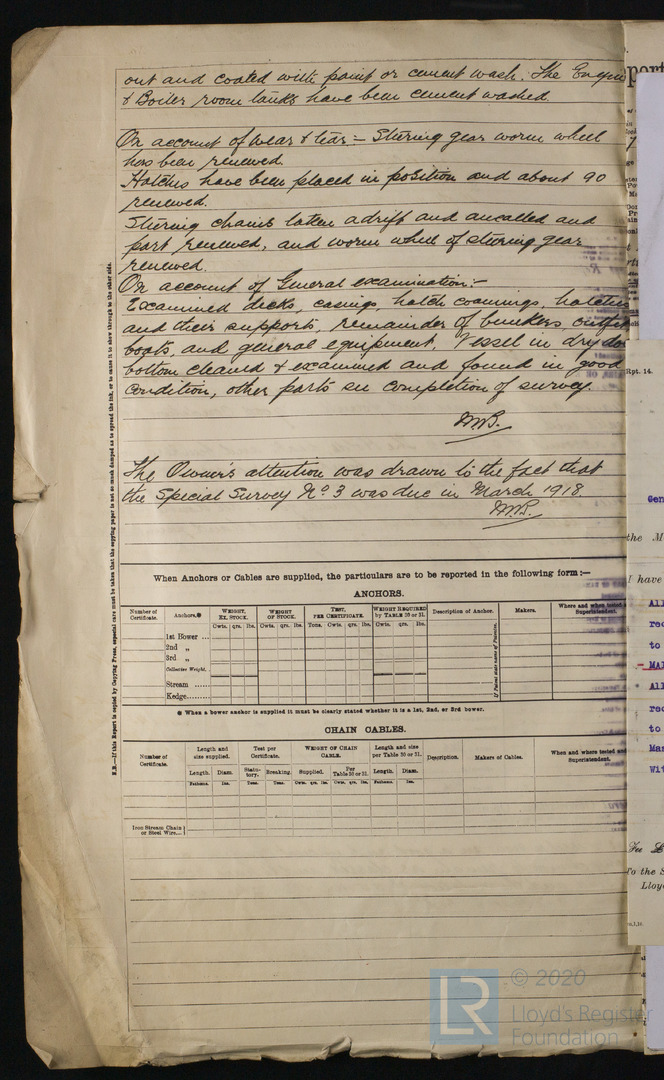 out and coated with paint or cement wash. The Engine
& Boiler room tanks have been cement washed.
On account of Wear & tear:- Steering gear worm wheel
has been renewed.
Hatches have been placed in position and about 90
renewed.
Steering chains taken adrift and annealed and
part renewed, and worm wheel of steering gear
renewed.
On account of General examination:-
Examined decks, casings, hatch coamings, hatches
and their supports, remainder of bunkers, outfit
boats, and general equipment. Vessel in dry do
bottom cleaned & examined and found in good
condition, other parts see completion of survey.
The Owner's attention was drawn to the fact that
the Special Survey No 3 was due in March 1918.
N.B.—If this Report is copied by Copying Press, especial care must be taken that the copying paper is not so much damped as to spread the ink, or to cause it to show through to the other side.
When Anchors or Cables are supplied, the particulars are to be reported in the following form:—
ANCHORS.
Number of Certificate.
Anchors.
WEIGHT, EX. STOCK.
WEIGHT OF STOCK.
TEST, PER CERTIFICATE.
WEIGHT REQUIRED by TABLE 30 or 31.
Description of Anchor.
Makers.
Where and when tested
Superintendent.
Cwts. qrs. lbs. Cwts. qrs. lbs. Tons. Cwts. qrs. lbs. Cwts. qrs. lbs.
1st Bower ...
2nd „
3rd „
Collective Weight.
Stream ......
Kedge.........
When a bower anchor is supplied it must be clearly stated whether it is a 1st, 2nd, or 3rd bower.
CHAIN CABLES.
Number of Certificate.
Length and size supplied.
Test per Certificate.
WEIGHT OF CHAIN CABLE.
Length and size per Table 30 or 31.
Description.
Makers of Cables.
When and where tested and
Superintendent.
Length. Diam. Statutory. Breaking. Supplied. Per Table 30 or 31. Length. Diam.
Fathoms. Ins. Tons. Tons. Cwts. qrs. lbs. Cwts. qrs. lbs. Fathoms. Ins.
Iron Stream Chain
or Steel Wire...
Rpt. 14.
Gen
the M
I have
All
rec
to
MAI
All
rec
to
Mas
Wit
To the S
Lloy
LR
© 2020
Lloyd's Register
Foundation